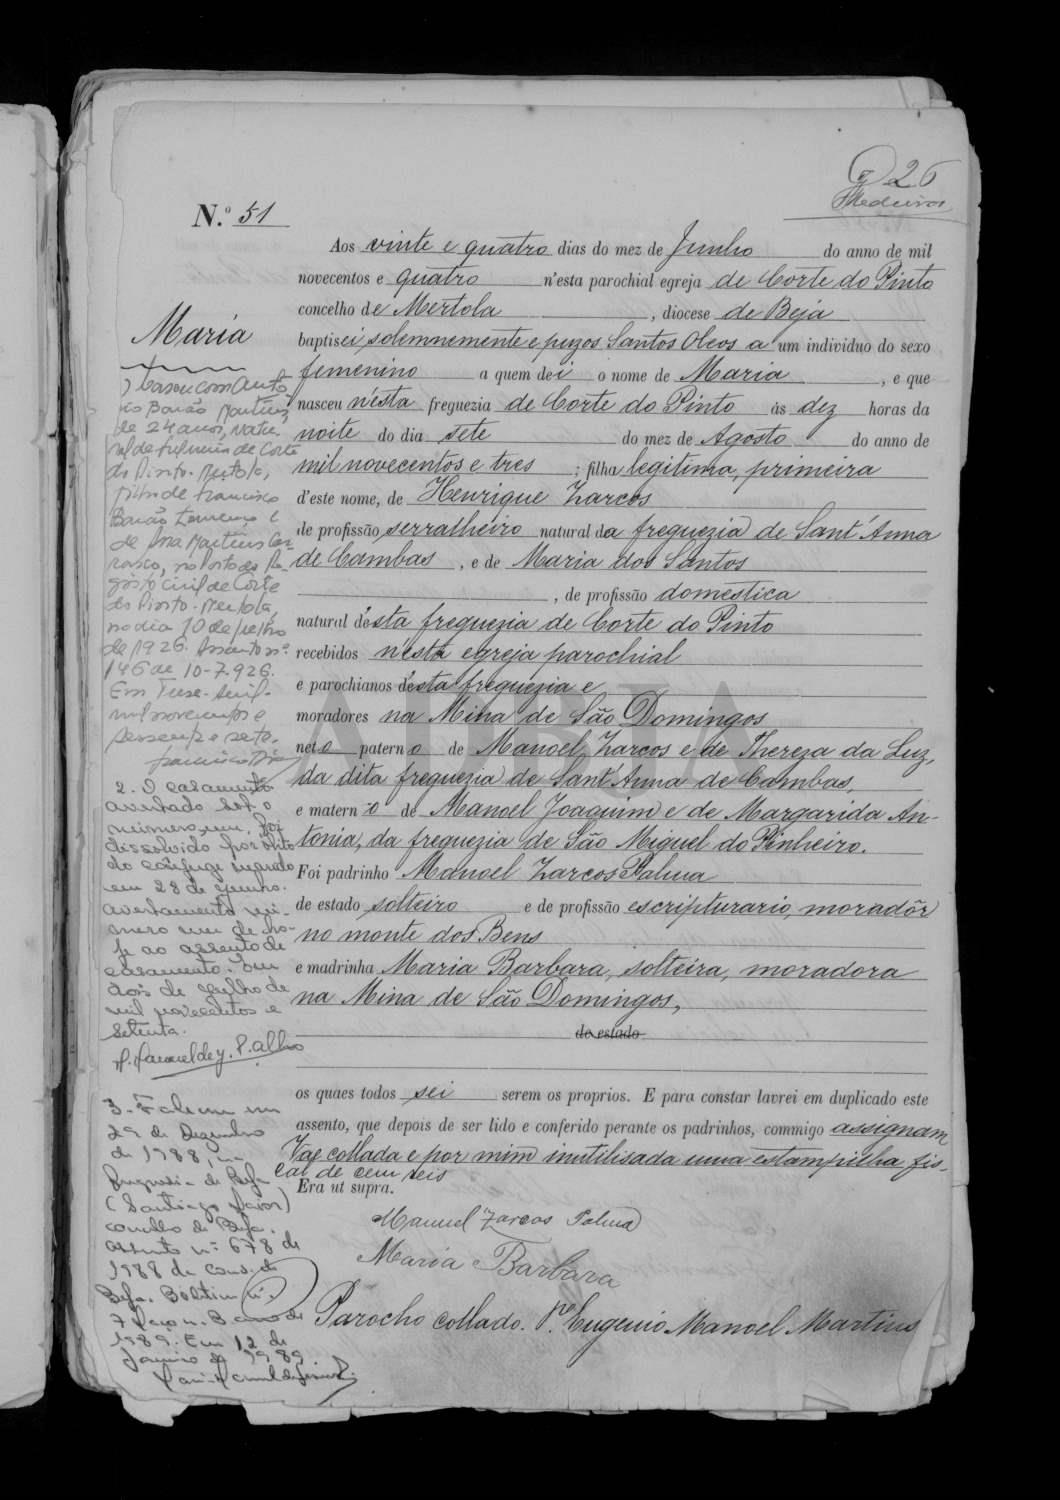 26
Medeiros
N.º 51
Maria
Aos vinte e quatro dias do mez de Junho do anno de mil
novecentos e quatro n'esta parochial egreja de Corte do Pinto
concelho de Mertola, diocese de Beja
baptisei solemnemente e puz os Santos Oleos a um individuo do sexo
femenino a quem dei o nome de Maria, e que
nasceu n'esta freguezia de Corte do Pinto ás dez horas da
noite do dia sete do mez de Agosto do anno de
mil novecentos e tres; filha legitima, primeira
d'este nome, de Henrique Zarcos
de profissão serralheiro natural da freguezia de Sant'Anna
de Cambas, e de Maria dos Santos
, de profissão domestica
natural d'esta freguezia de Corte do Pinto
recebidos nesta egreja parochial
e parochianos d'esta freguezia e
moradores na Mina de São Domingos
neto paterno de Manoel Zarcos e de Thereza da Luz,
da dita freguezia de Sant'Anna de Cambas,
e materno de Manoel Joaquim e de Margarida An-
tonia, da freguezia de São Miguel do Pinheiro.
Foi padrinho Manoel Zarcos Palma
de estado solteiro e de profissão escripturario, moradôr
no monte dos Bens
e madrinha Maria Barbara, solteira, moradora
na Mina de São Domingos,
de estado
os quaes todos sei serem os proprios. E para constar lavrei em duplicado este
assento, que depois de ser lido e conferido perante os padrinhos, commigo assignam
Vae collada e por mim inutilisada uma estampilha fis-
cal de cem reis
Era ut supra.
Manuel Zarcos Palma
Maria Barbara
Parocho collado. P.e Eugenio Manoel Martins
1 Casou com Anto-
nio Barão Martins,
de 24 anos, natu-
ral de freguesia de Corte
do Pinto. Mertola,
filho de Francisco
Barão Lourenço e
de Ana Martins Car-
rasco, no Posto do Re-
gisto Civil de Corte
do Pinto. Mertola,
no dia 10 de Julho
de 1926. Assento nº
146 de 10-7-926.
Em
mil novecentos e
sessenta e sete.
2. O casamento
averbado sob o
número um, foi
dissolvido por óbito
do cônjuge marido
em 28 de Junho.
averbamento nú-
mero um de ho-
je ao assento de
casamento. Em
dois de Julho de
mil novecentos e
setenta.
3 - Faleceu em
29 de Dezembro
de 1988, na
freguesia de Beja
(Santiago Maior)
concelho de Beja.
assento nº 678 de
1988 da Cons. de
Beja. Boletim nº
1989. Em 12 de
Janeiro de 1989.
ADBJA